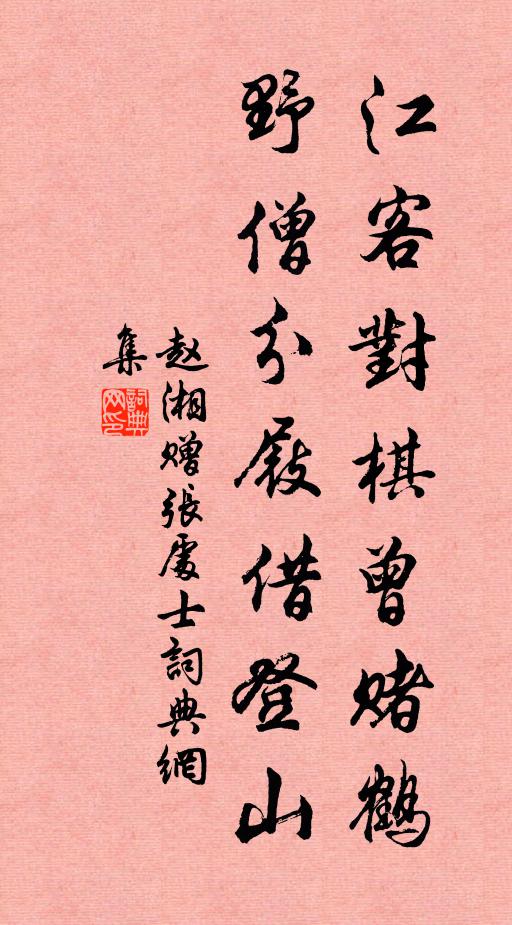 江客對棋曾賭鶴
野僧分屐借登山
赵湘赠張處士詞典網
集
詞典
网印